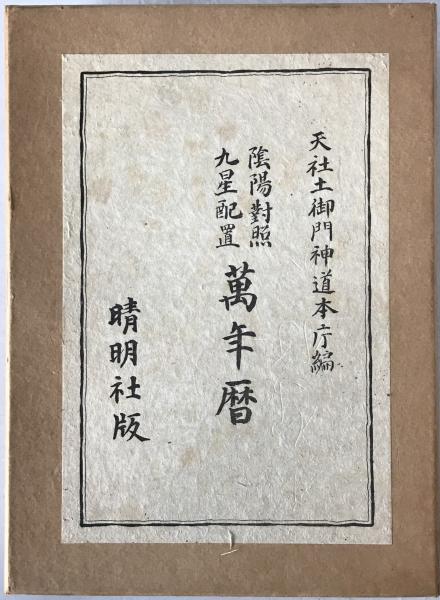 天社土御門神道本庁編
陰陽對照
九星配置
萬年暦
晴明社版